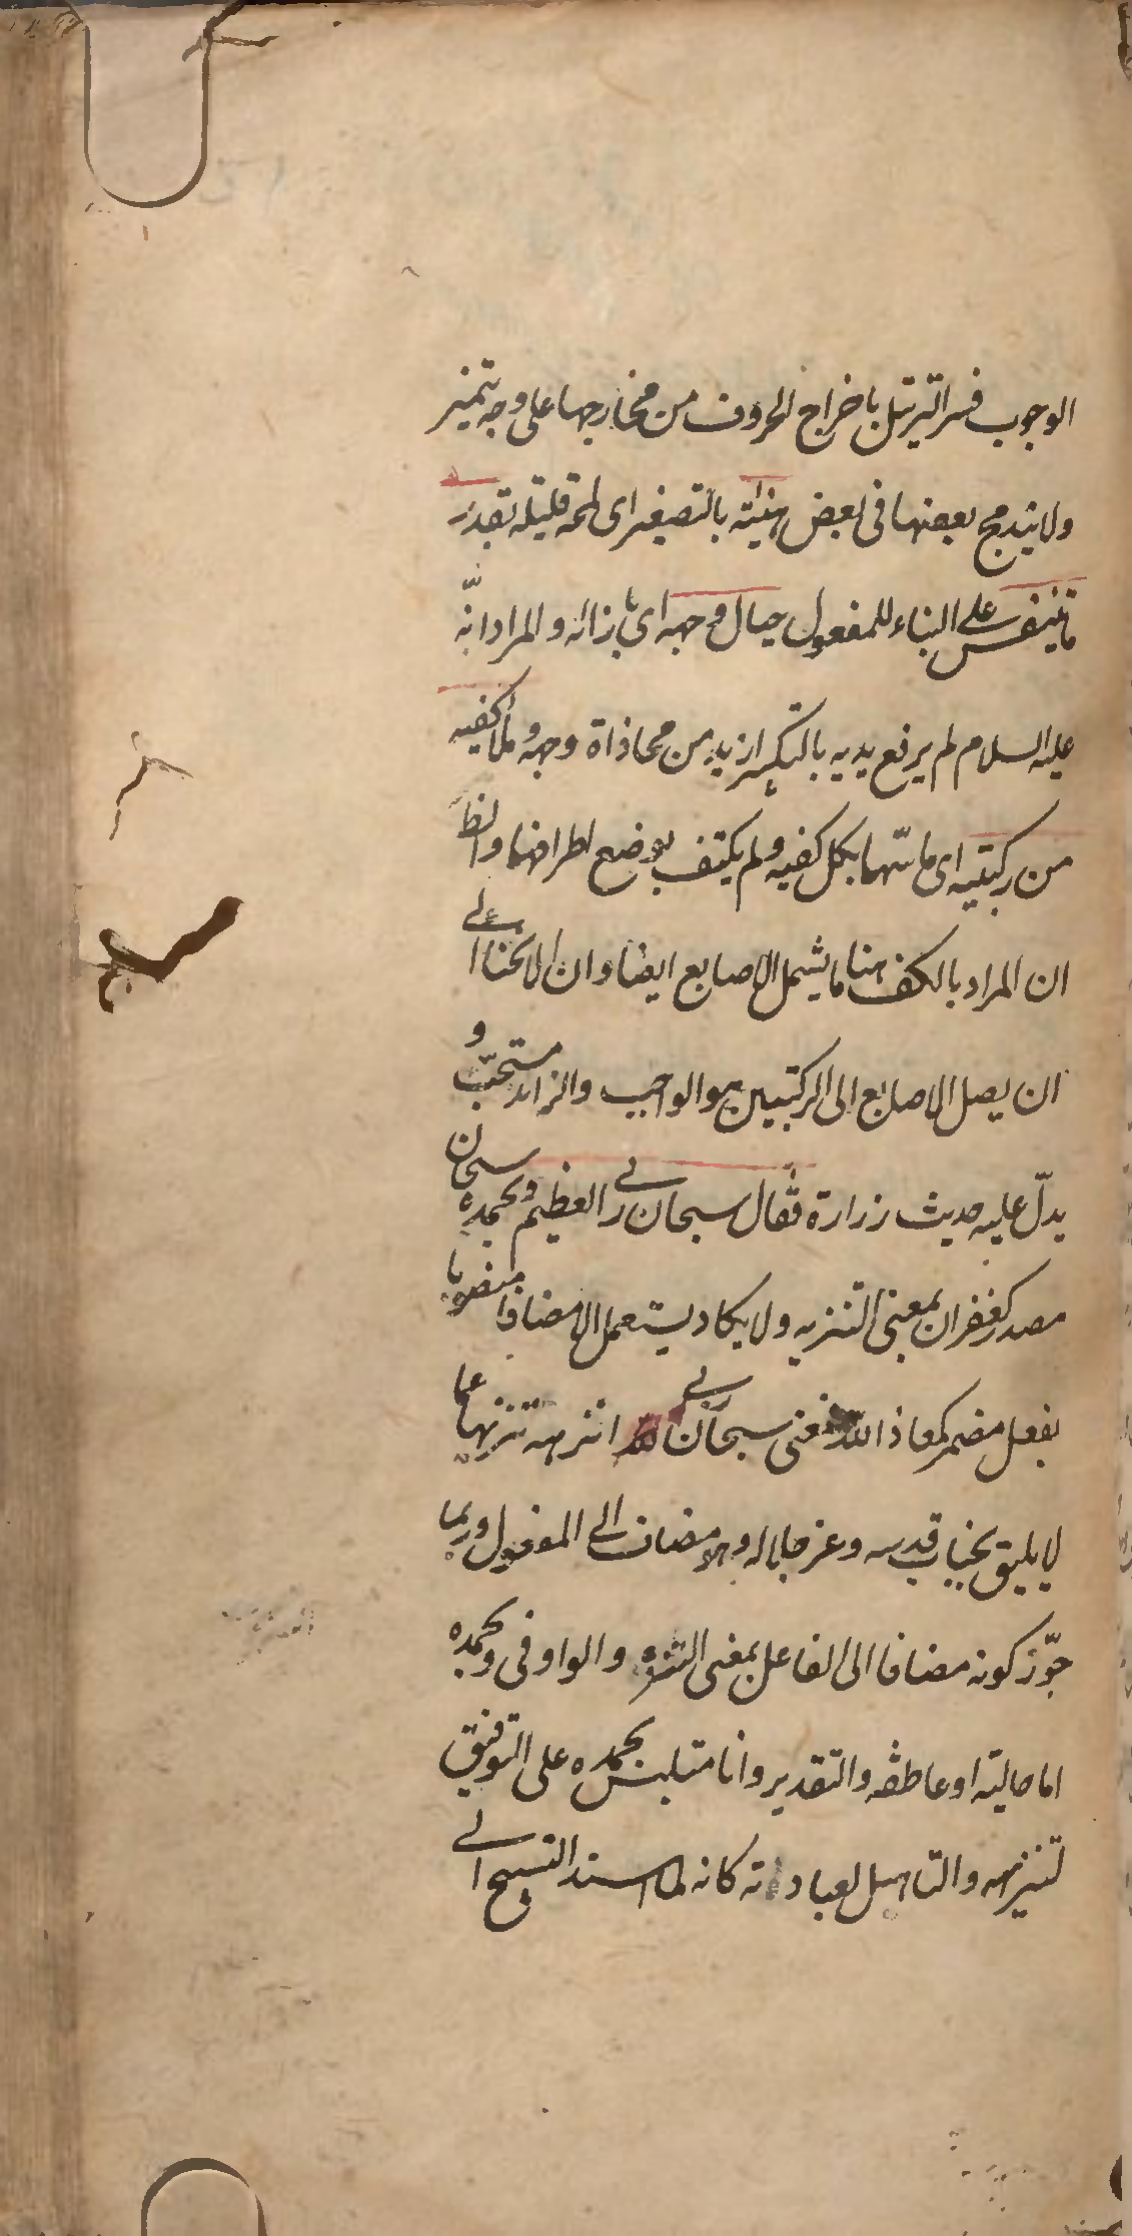 الوجوب فسر الترتيل باخراج الحروف من مخارجها على وجه يتميز
ولا يندمج بعضها في بعض هنيئة بالتصغير اى لمحة قليلة بقدر
ما يتنفس على البناء للمفعول حيال وجهه اى بازائه والمراد انّه
عليه السلام لم يرفع يديه بالتكبير ازيد من محاذاة وجهه وملأ كفيه
من ركبتيه اى ماسّهما بكل كفيه ولم يكتف بوضع اطرافهما والظ
ان المراد بالكف هنا ما يشمل الاصابع ايضا وان الانحنا الى
ان يصل الاصابع الى الركبتين هو الواجب والزايد مستحبّ و
يدلّ عليه حديث زرارة فقال سبحان ربي العظيم وبحمده سبحان
مصدر كغفران بمعنى التنزيه ولا يكاد يستعمل الا مضافا منصوبا
بفعل مضمر كمعاذ الله فمعنى سبحان ربي انزهه تنزيها عما
لا يليق بجناب قدسه وعز جلاله وهو مضاف الى المفعول وربما
جوّز كونه مضافا الى الفاعل بمعنى التنزه والواو في وبحمده
اما حالية او عاطفة والتقدير وانا متلبس بحمده على التوفيق
لتنزيهه والتاهيل لعبادته كانه لما اسند التسبيح الى